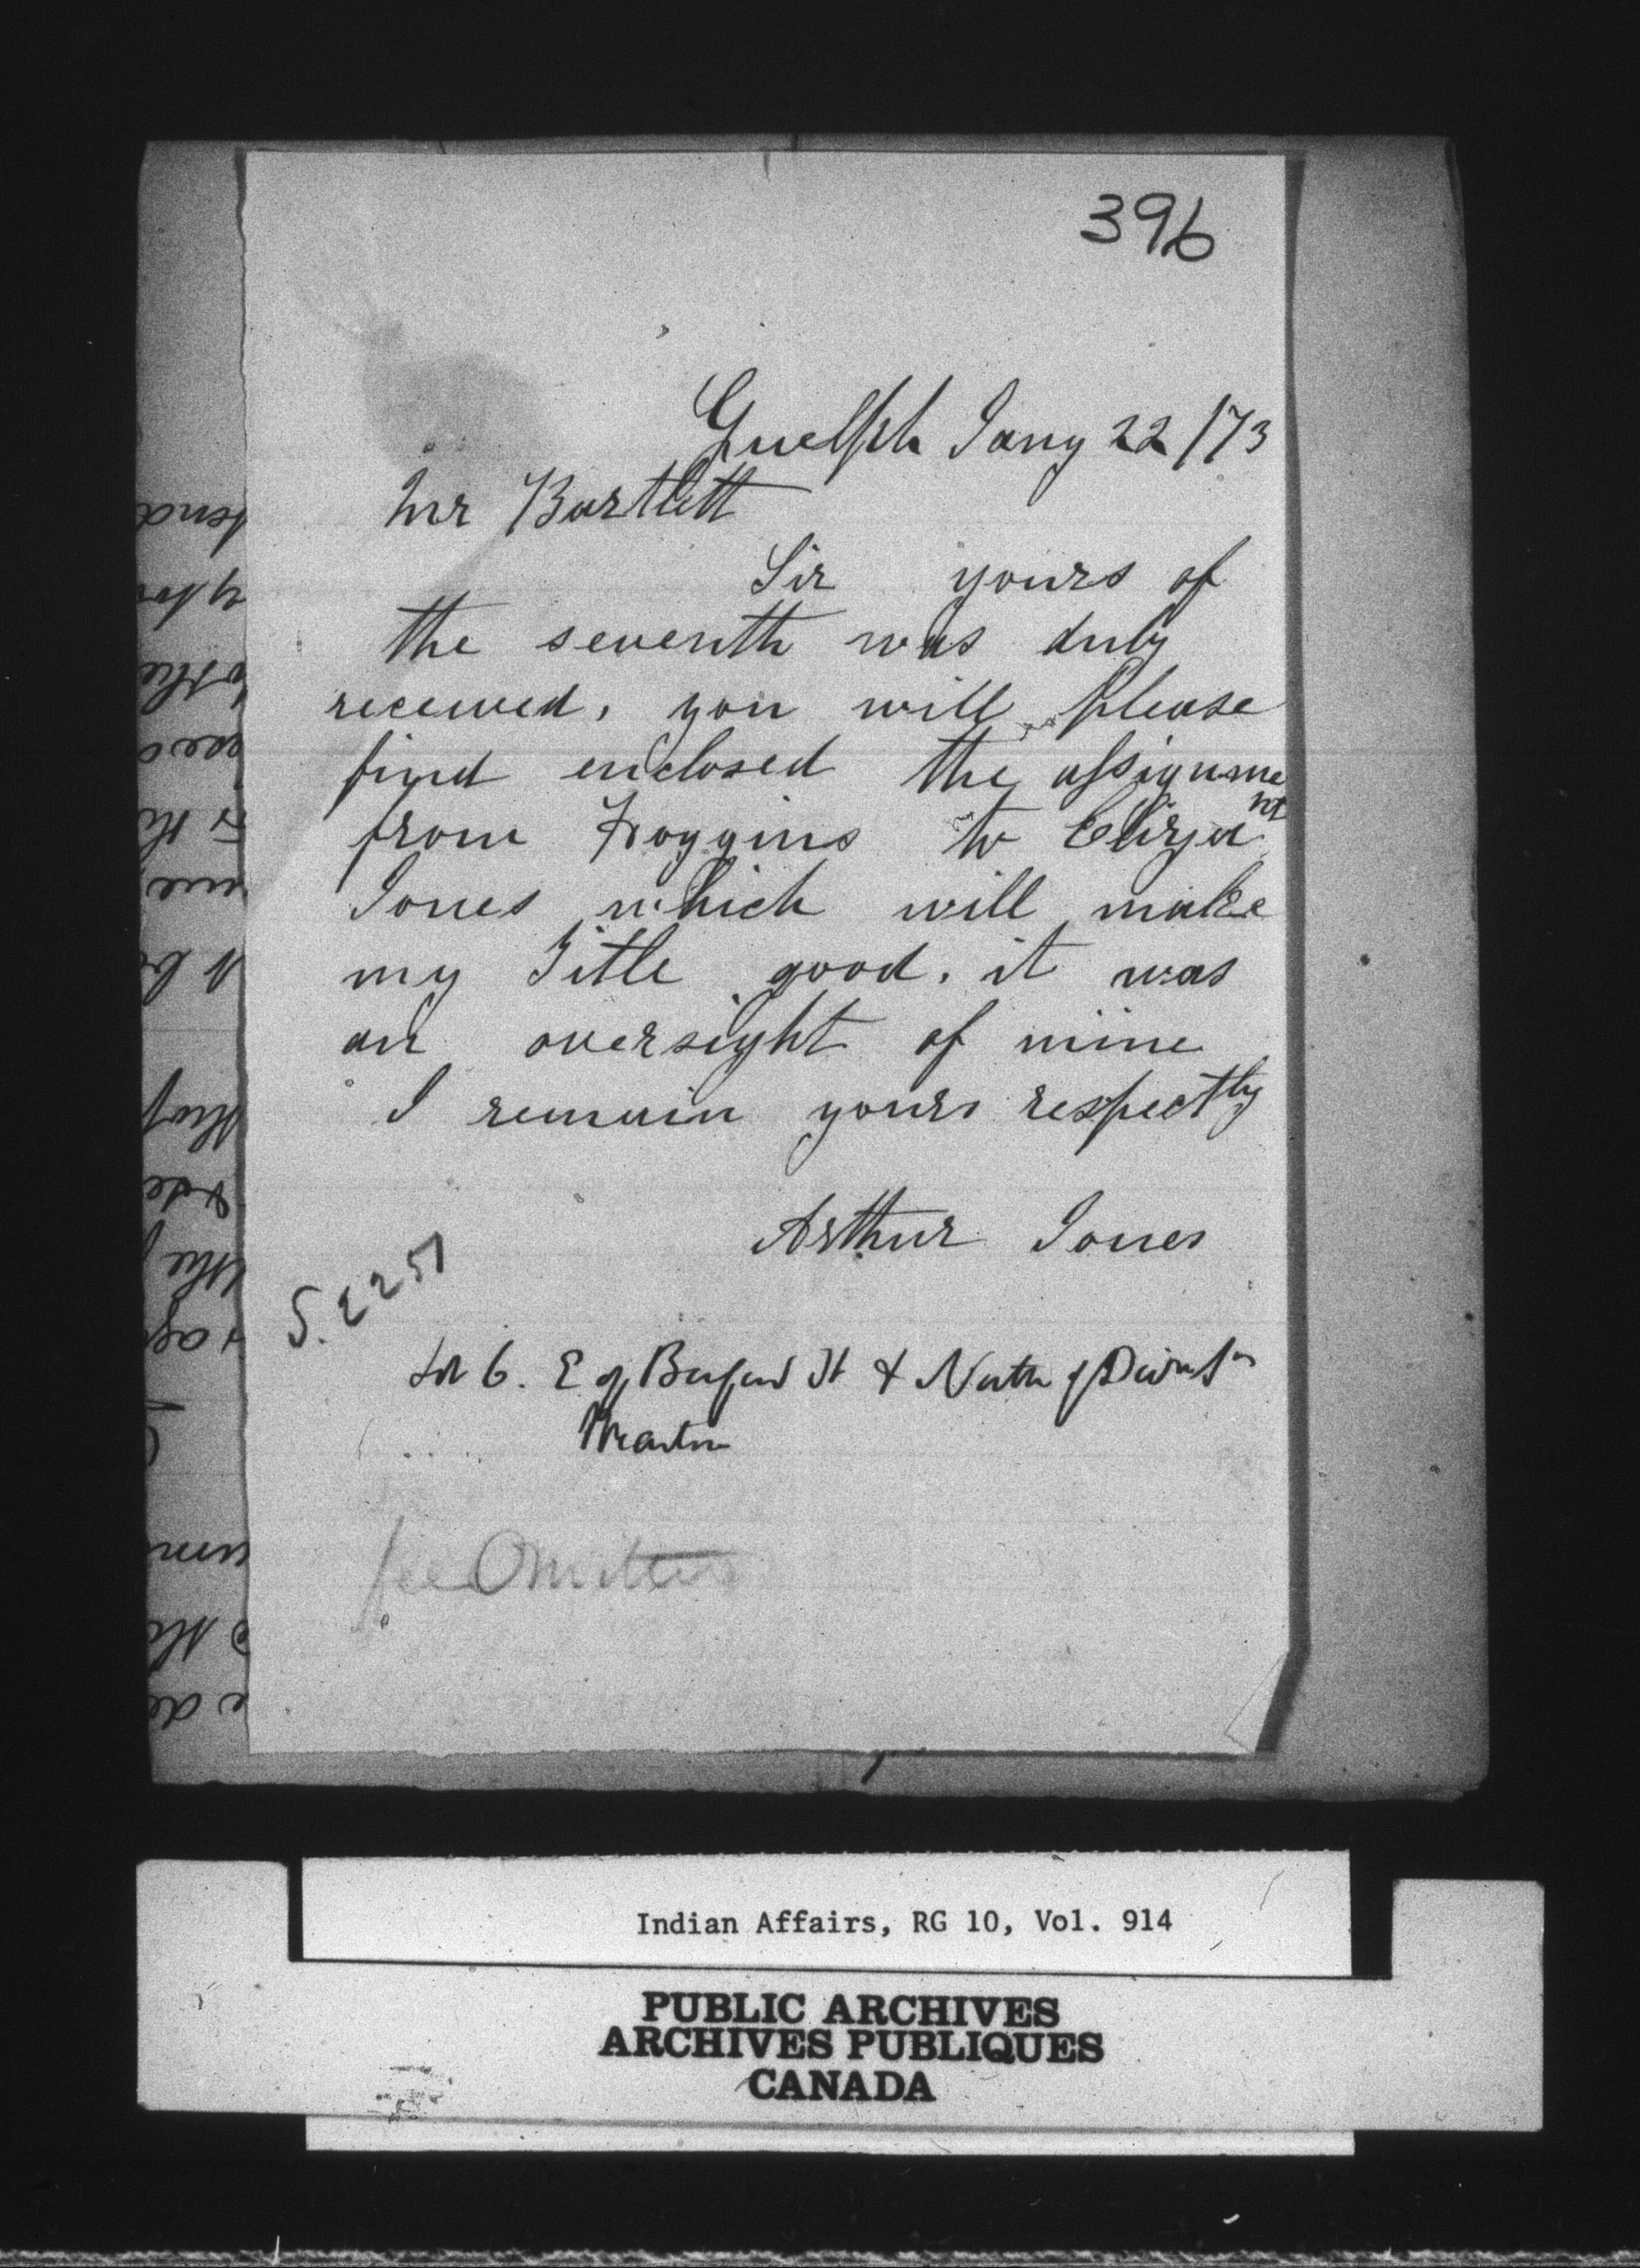 396
Guelph Jany 22/73
Mr Bartlett
Sir yours of
the seventh was duly
received, you will please
find enclosed the assignment
from Hoggins to Eliza
Jones which will make
my Title good. it was
an oversight of mine
I remain yours respectly
Arthur Jones
S. E 257
Lot 6. E of Berford St & North of Divis
Wiarton
fee Omitted
Indian Affairs, RG 10, Vol. 914
PUBLIC ARCHIVES
ARCHIVES PUBLIQUES
CANADA